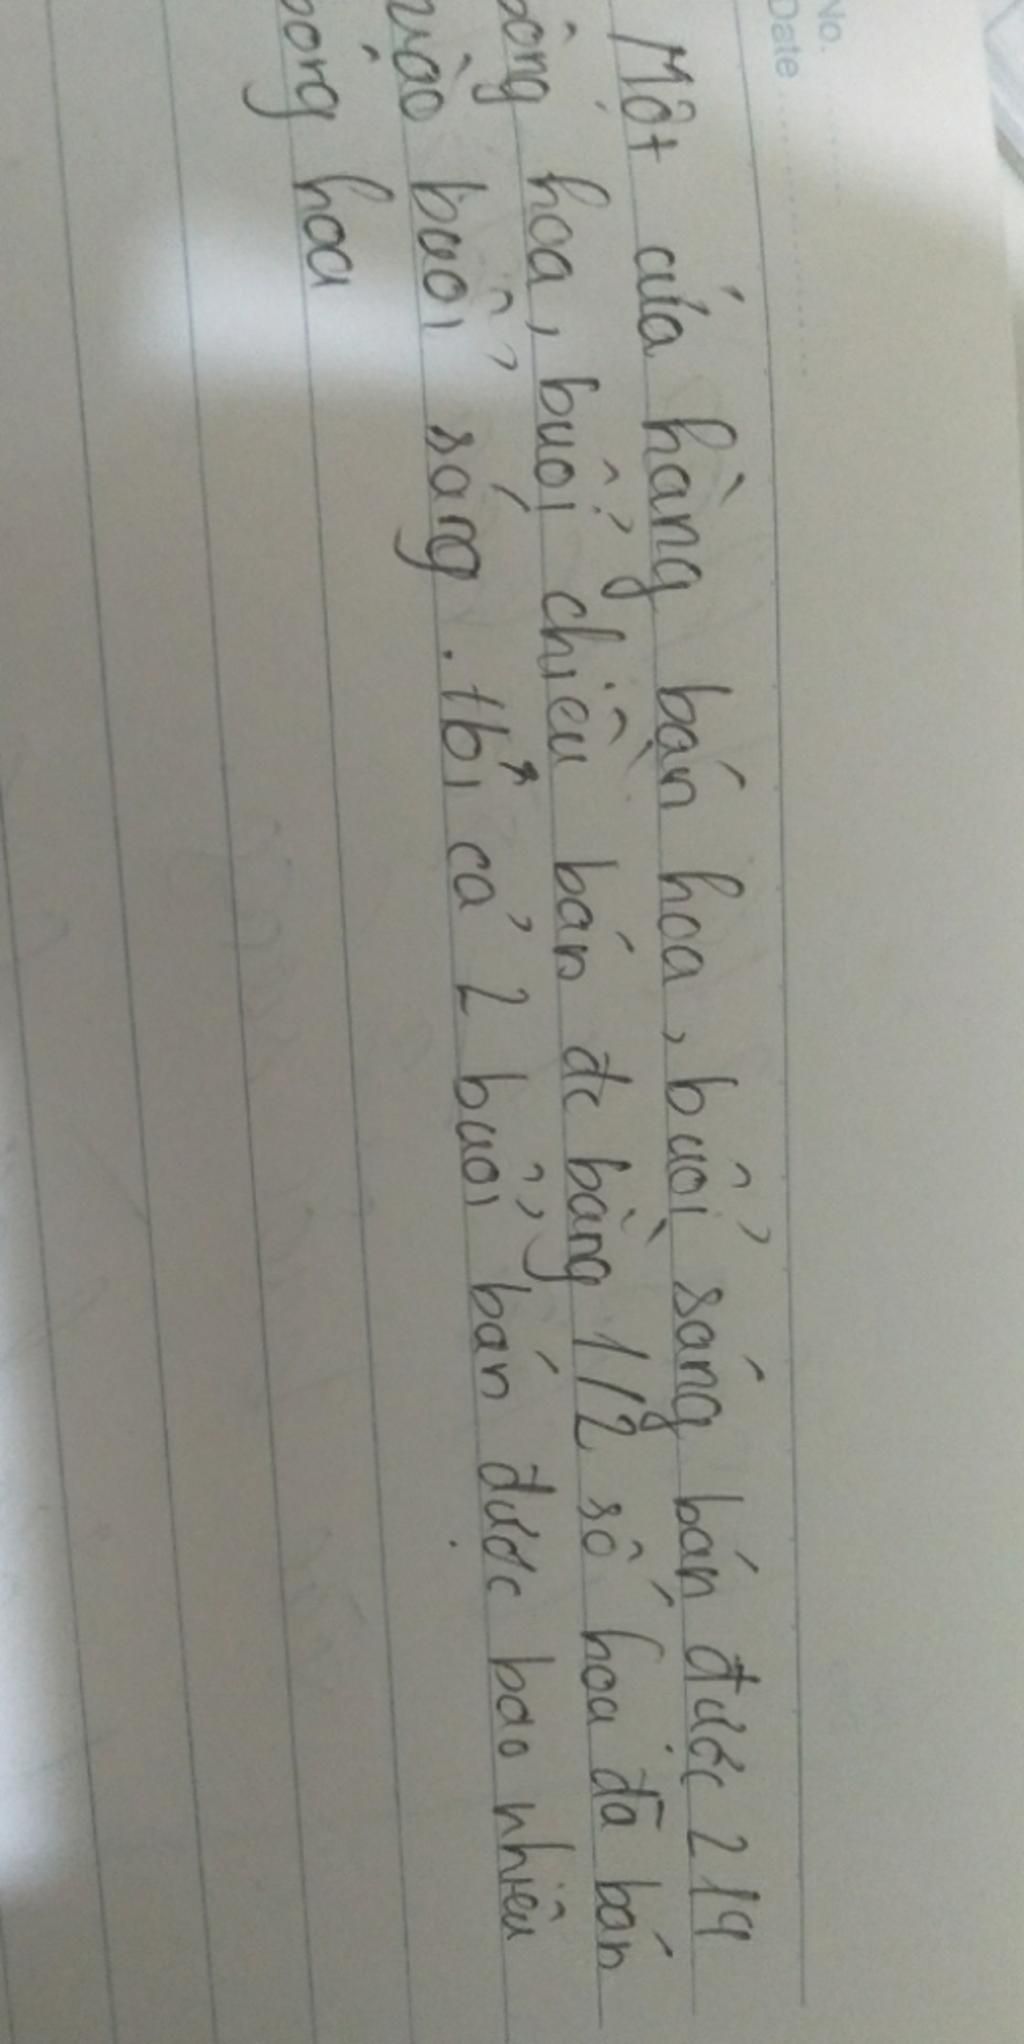 No.
Date
Một cửa hàng bán hoa, buổi sáng bán được 219
bông hoa, buổi chiều bán đc bằng 1/2 số hoa đã bán
vào buổi sáng. tbi cả 2 buổi bán được bao nhiêu
bông hoa